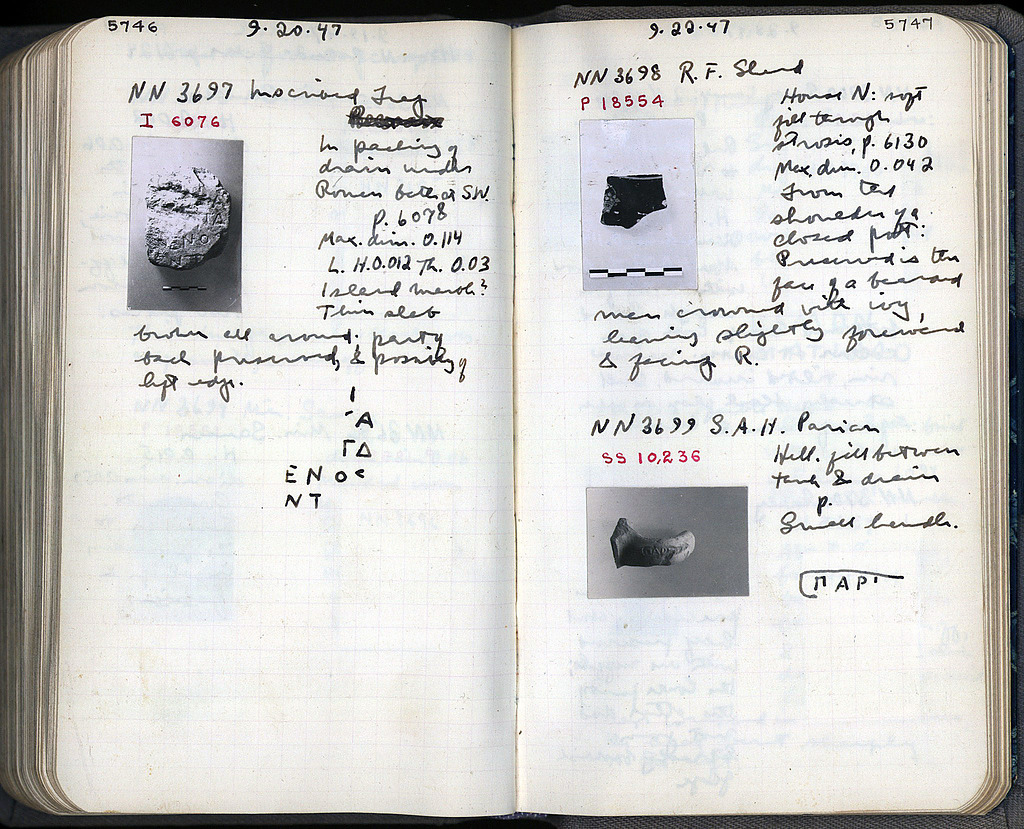 5746
9.20.47
NN 3697 Inscribed Frag
I 6076
In packing of
drain under
Roman bath at SW.
p. 6078
Max. dim. 0.114
L. H. 0.012 Th. 0.03
Island marble?
Thin slab
broken all around; partly
back preserved, & possibly
left edge.
Ι
Α
ΓΔ
ΕΝΟΣ
ΝΤ
5747
9.22.47
NN 3698 R. F. Sherd
P 18554
House N: soft
fill through
strosis, p. 6130
Max. dim. 0.042
From the
shoulder of a
closed pot:
Preserved is the
face of a bearded
man crowned with ivy,
leaning slightly forward
& facing R.
NN 3699 S.A.H. Parian
SS 10,236
Hell. fill between
tank & drain
p.
Small handle.
ΠΑΡΙ